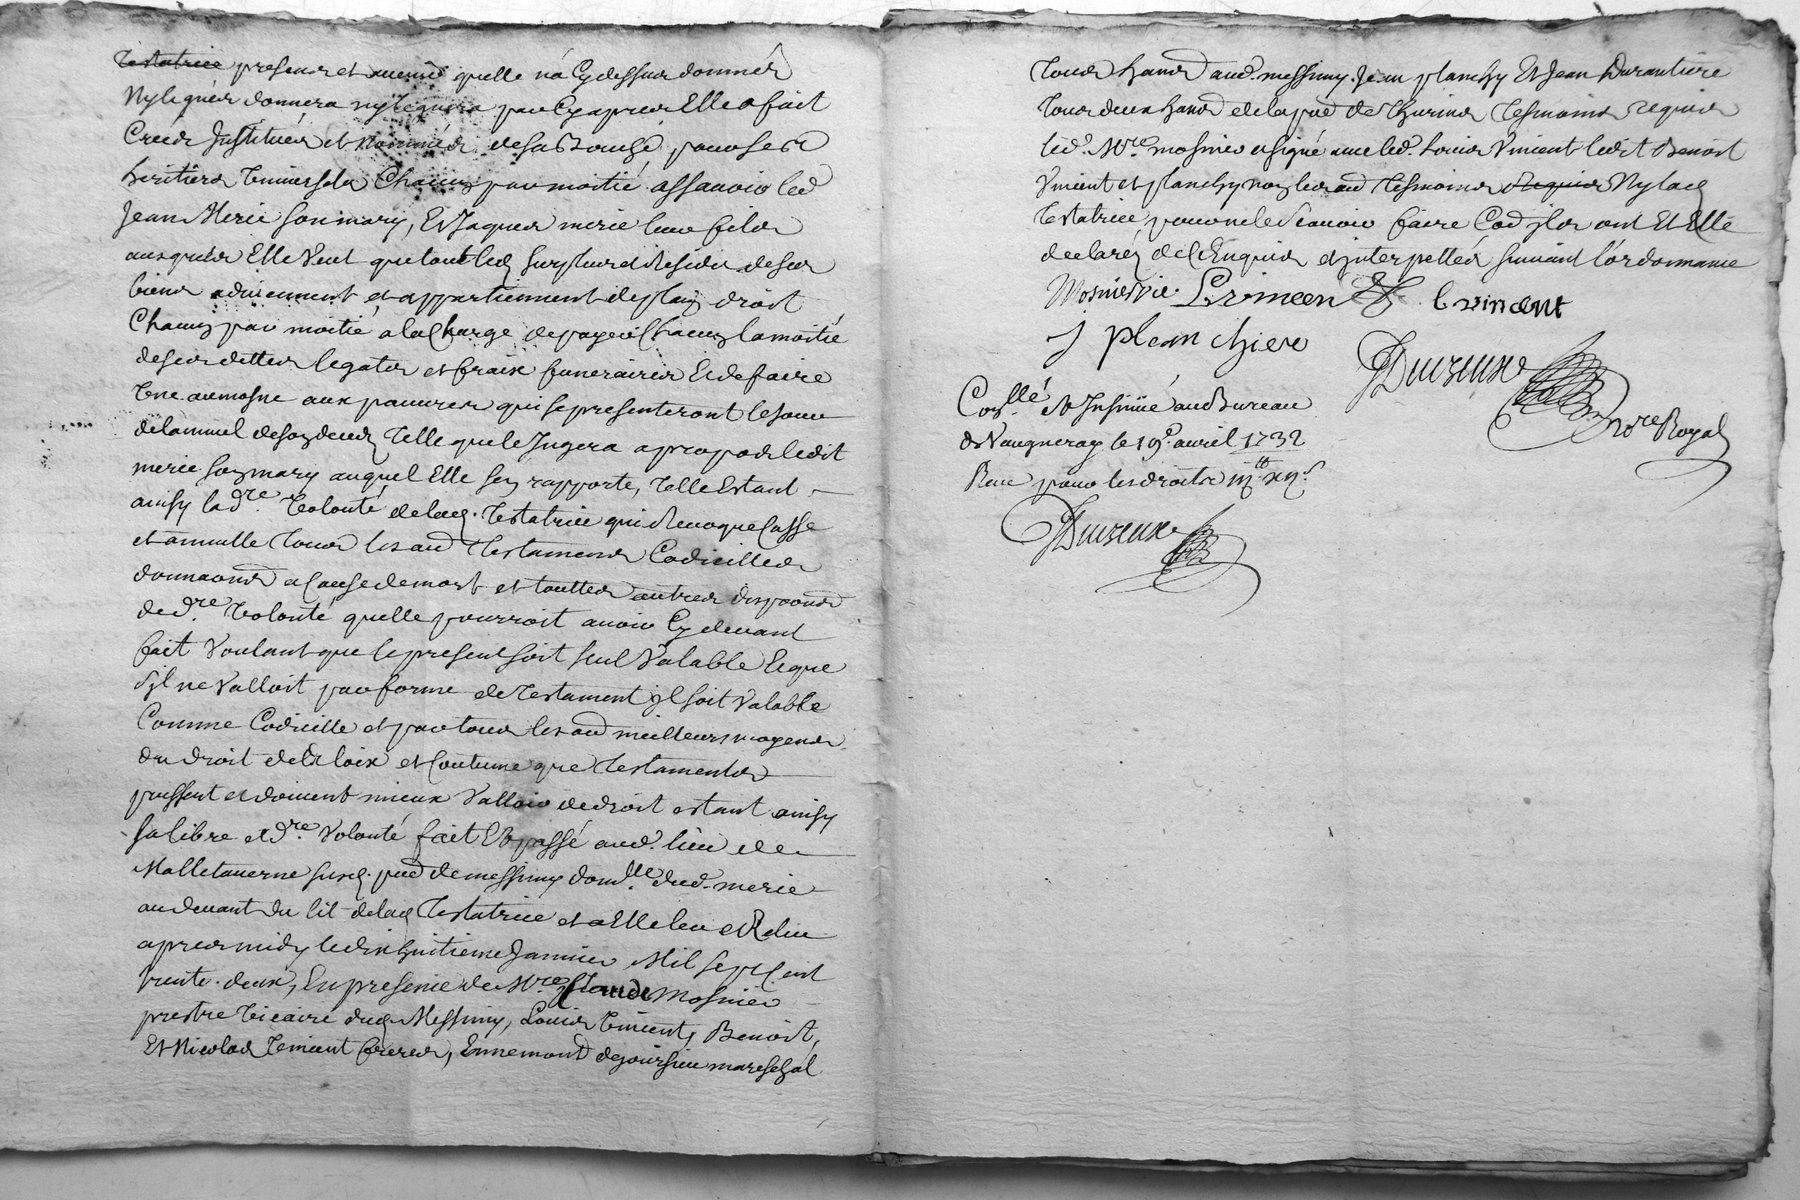 Testatrice presens et avenir quelle na Cy dessus donnés
Ny legués donnera ny leguera par Cy apres Elle a fait
Creés Institués et Nommés de sa bouche pour ses
heritiers Univerels Chacun par moitié assavoir led
Jean Merie son mary, Et Jaques merie leur fils
ausquels Elle Veut que tout led surplus et Residu de ses
biens adviennent et appartiennent de plain droit
Chacun par moitié a la Charge de payer Chacun la moitié
de ses dettes legats et fraix funeraires Et de faire
Une aumosne aux pauvres qui se presenteront le jour
de lannuel de son deceds Telle que le Jugera a propos ledit
merie son mary auquel Elle sen rapporte, Telle Estant
ainsy la dre. Volonté de lad. Testatrice qui Revoque Casse
et annulle Tous les aud Testamens Codicilles
donnaons a Cause de mort et touttes autres dispoons
de dre. Volonté quelle pourroit avoir Cy devant
fait Voulant que le present soit seul Valable Et que
Sil ne Valloit par forme de Testament jl soit Valable
Comme Codicille et par tous les aud meilleurs moyens
du droit de loix et Coutume que Testaments
puissent et doivent mieux Valloir de droit estant ainsy
sa libre et dre. Volonté fait Et passé aud. lieu de
Malletaverne susd. pad de messimy domlle. dud. merie
au devant du lit de lad Testatrice et a Elle leu et Releu
apres midy le dix huitieme Janvier Mil sept Cent
trente-deux, En presence de Mre. Claude Mosnier
prestre Vicaire dud Messimy, Louis Vincent, Benoist,
Et Nicolas Vincent freres, Ennemond degoirsieu mareschal
Tous hans aud. messimy. Jean planchy Et Jean Durantiere
Tous deux hans de la pad de Thurins Tesmoins requis
led. Mre. mosnier a signé avec led. Louis Vincent ledit Benoist
Vincent et planchy non les aud Tesmoins Requis Ny lad
Testatrice pour ne le Scavoir faire Cod jls ont Et Elle
declarés de ce Enquis et interpellés suivant l'ordonnance
Mosnier vic. b vincent
J plan chiere
JDuizeux Nore Royal
Conllé Et Insinué au Bureau
de Vaugneray le 19e. avril 1732
Receu pour les droits
JDuizeux